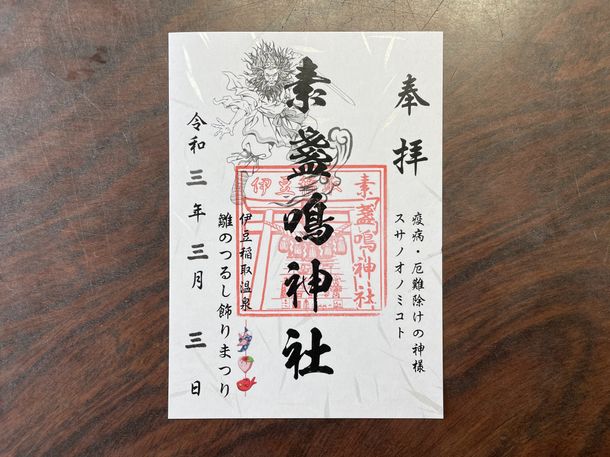 奉拝
疫病・厄難除けの神様
スサノオノミコト
素盞鳴神社
伊豆稲取
素盞鳴神社
伊豆稲取温泉
雛のつるし飾りまつり
令和三年三月三日